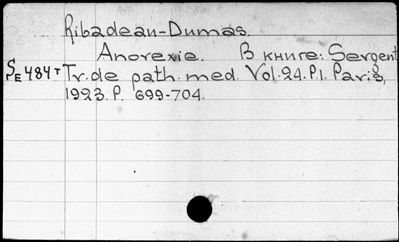 Ribadeau-Dumas.
Anorexie. В книге: Sergent
SE 484T Tr. de path. med. Vol. 24. P. 1. Paris,
1923. P. 699-704.